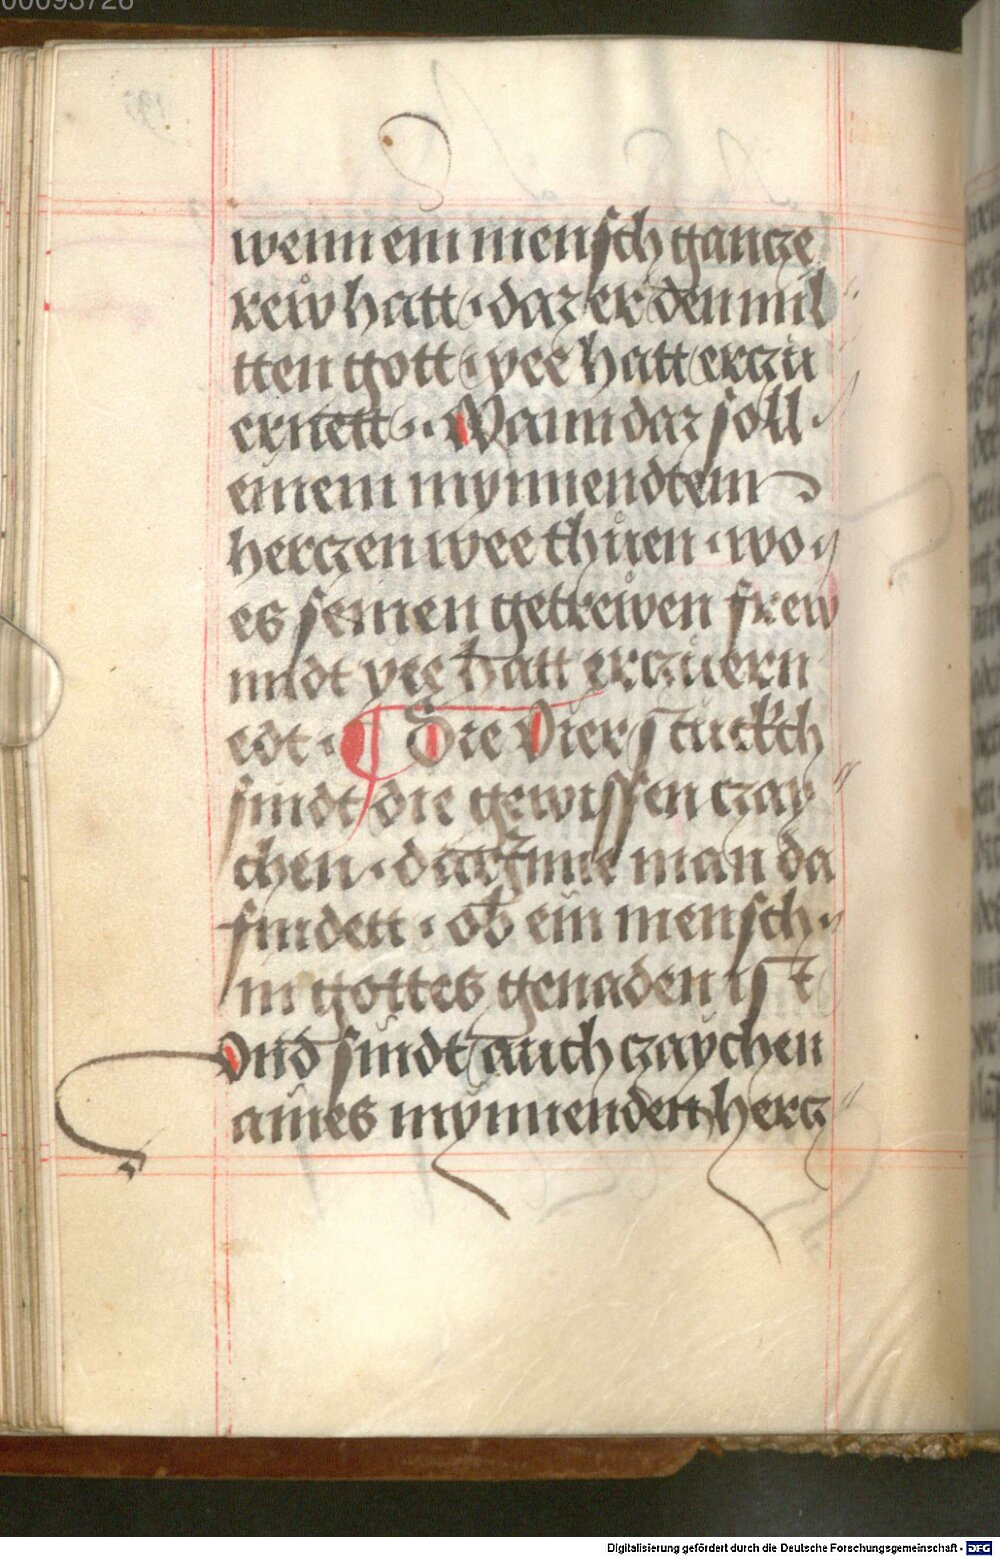 00093726
wenn ein mensch gancze
rew hatt · daz er den mil
tten gott · yee hatt erczu
ernett · Wann daz soll
einem mynnendtem
herczen wee thůen · wo
es seinen getrewen frew
nndt yee hatt erczuern
edt · Die Vier stuckch
sindt die gewissen czay
chen · darjnne man da
findett · ob ein mensch
in gottes genaden ist
Vnd sindt auch czaychen
aines mynnenden hercz
Digitalisierung gefördert durch die Deutsche Forschungsgemeinschaft - DFG